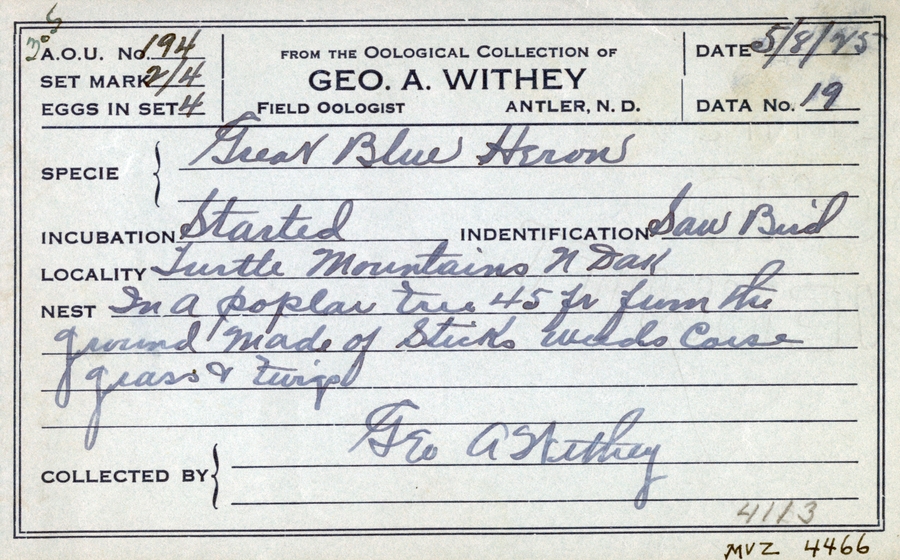 A.O.U. No. 194
SET MARK 2/4
EGGS IN SET 4
FROM THE OOLOGICAL COLLECTION OF
GEO. A. WITHEY
FIELD OOLOGIST ANTLER, N. D.
DATE 5/8/25
DATA No. 19
SPECIE Great Blue Heron
INCUBATION Started INDENTIFICATION Saw Bird
LOCALITY Turtle Mountains N Dak
NEST In a poplar tree 45 ft from the
ground made of Sticks weeds Corse
grass & twigs
Geo A Withey
COLLECTED BY
4113
MVZ 4466